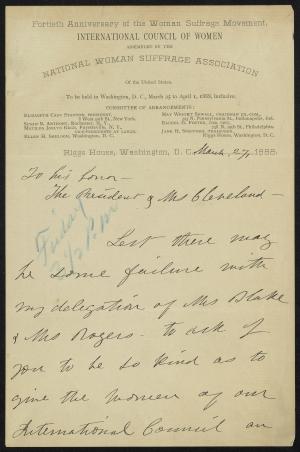 Fortieth Anniversary of the Woman Suffrage Movement.
INTERNATIONAL COUNCIL OF WOMEN
ASSEMBLED BY THE
NATIONAL WOMAN SUFFRAGE ASSOCIATION
Of the United States,
To be held in Washington, D. C., March 25 to April 1, 1888, inclusive.
COMMITTEE OF ARRANGEMENTS:
ELIZABETH CADY STANTON, PRESIDENT,
SUSAN B. ANTHONY, ROCHESTER, N. Y.,
MATILDA JOSLYN GAGE, FAYETTEVILLE, N. Y.,
VICE-PRESIDENTS AT LARGE.
ELLEN H. SHELDON, WASHINGTON, D. C.
MAY WRIGHT SEWALL, CHAIRMAN EX. COM.,
RACHEL G. FOSTER, COR. SEC.,
JANE H. SPOFFORD, TREASURER,
Riggs House, Washington, D. C.
Riggs House, Washington, D. C. March 27, 1888.
To his honor—
The President & Mrs Cleveland—
Friday
Lest there may
be some failure with
my delegation of Mrs Blake
& Mrs Rogers— to ask of
you to be so kind as to
give the women of our
International Council an